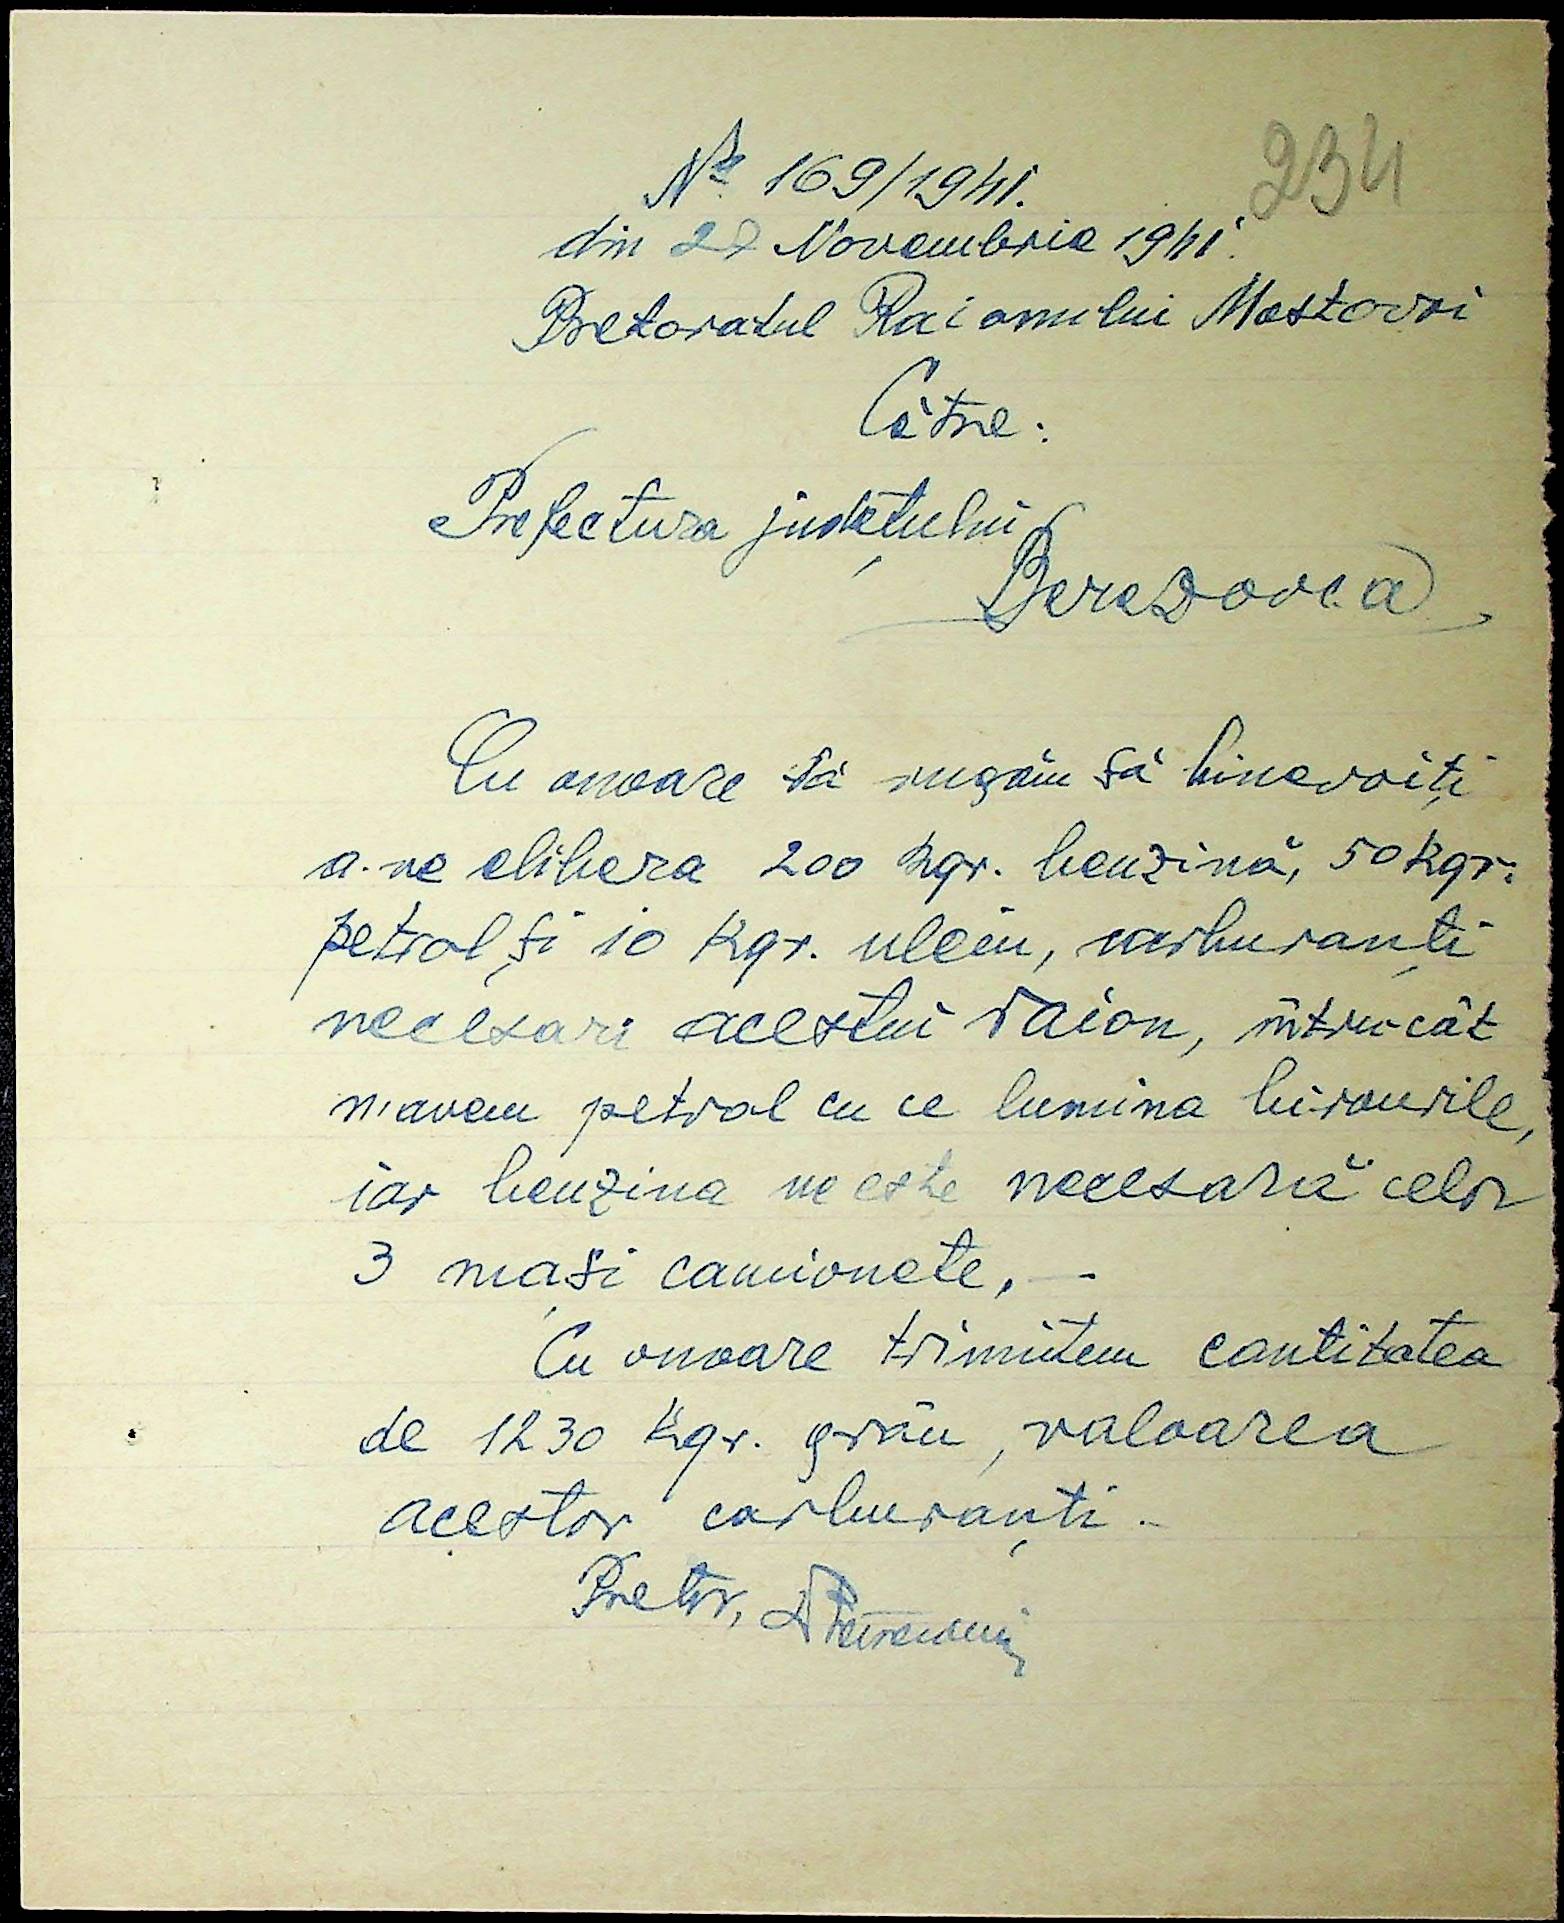 234
№ 169/1941.
din 27 Novembrie 1941.
Pretoratul Raionului Mostovoi
Către:
Prefectura județului
Berezovca
Cu onoare vă rugăm să binevoiți
a-ne elibera 200 kgr. benzină, 50 kgr.
petrol și 10 kgr. uleiu, carburanți
necesari acestui raion, întru-cât
n'avem petrol cu ce lumina birourile,
iar benzina ne este necesară celor
3 mași camionete. –
Cu onoare trimitem cantitatea
de 1230 kgr. grâu, valoarea
acestor carburanți. –
Pretor,